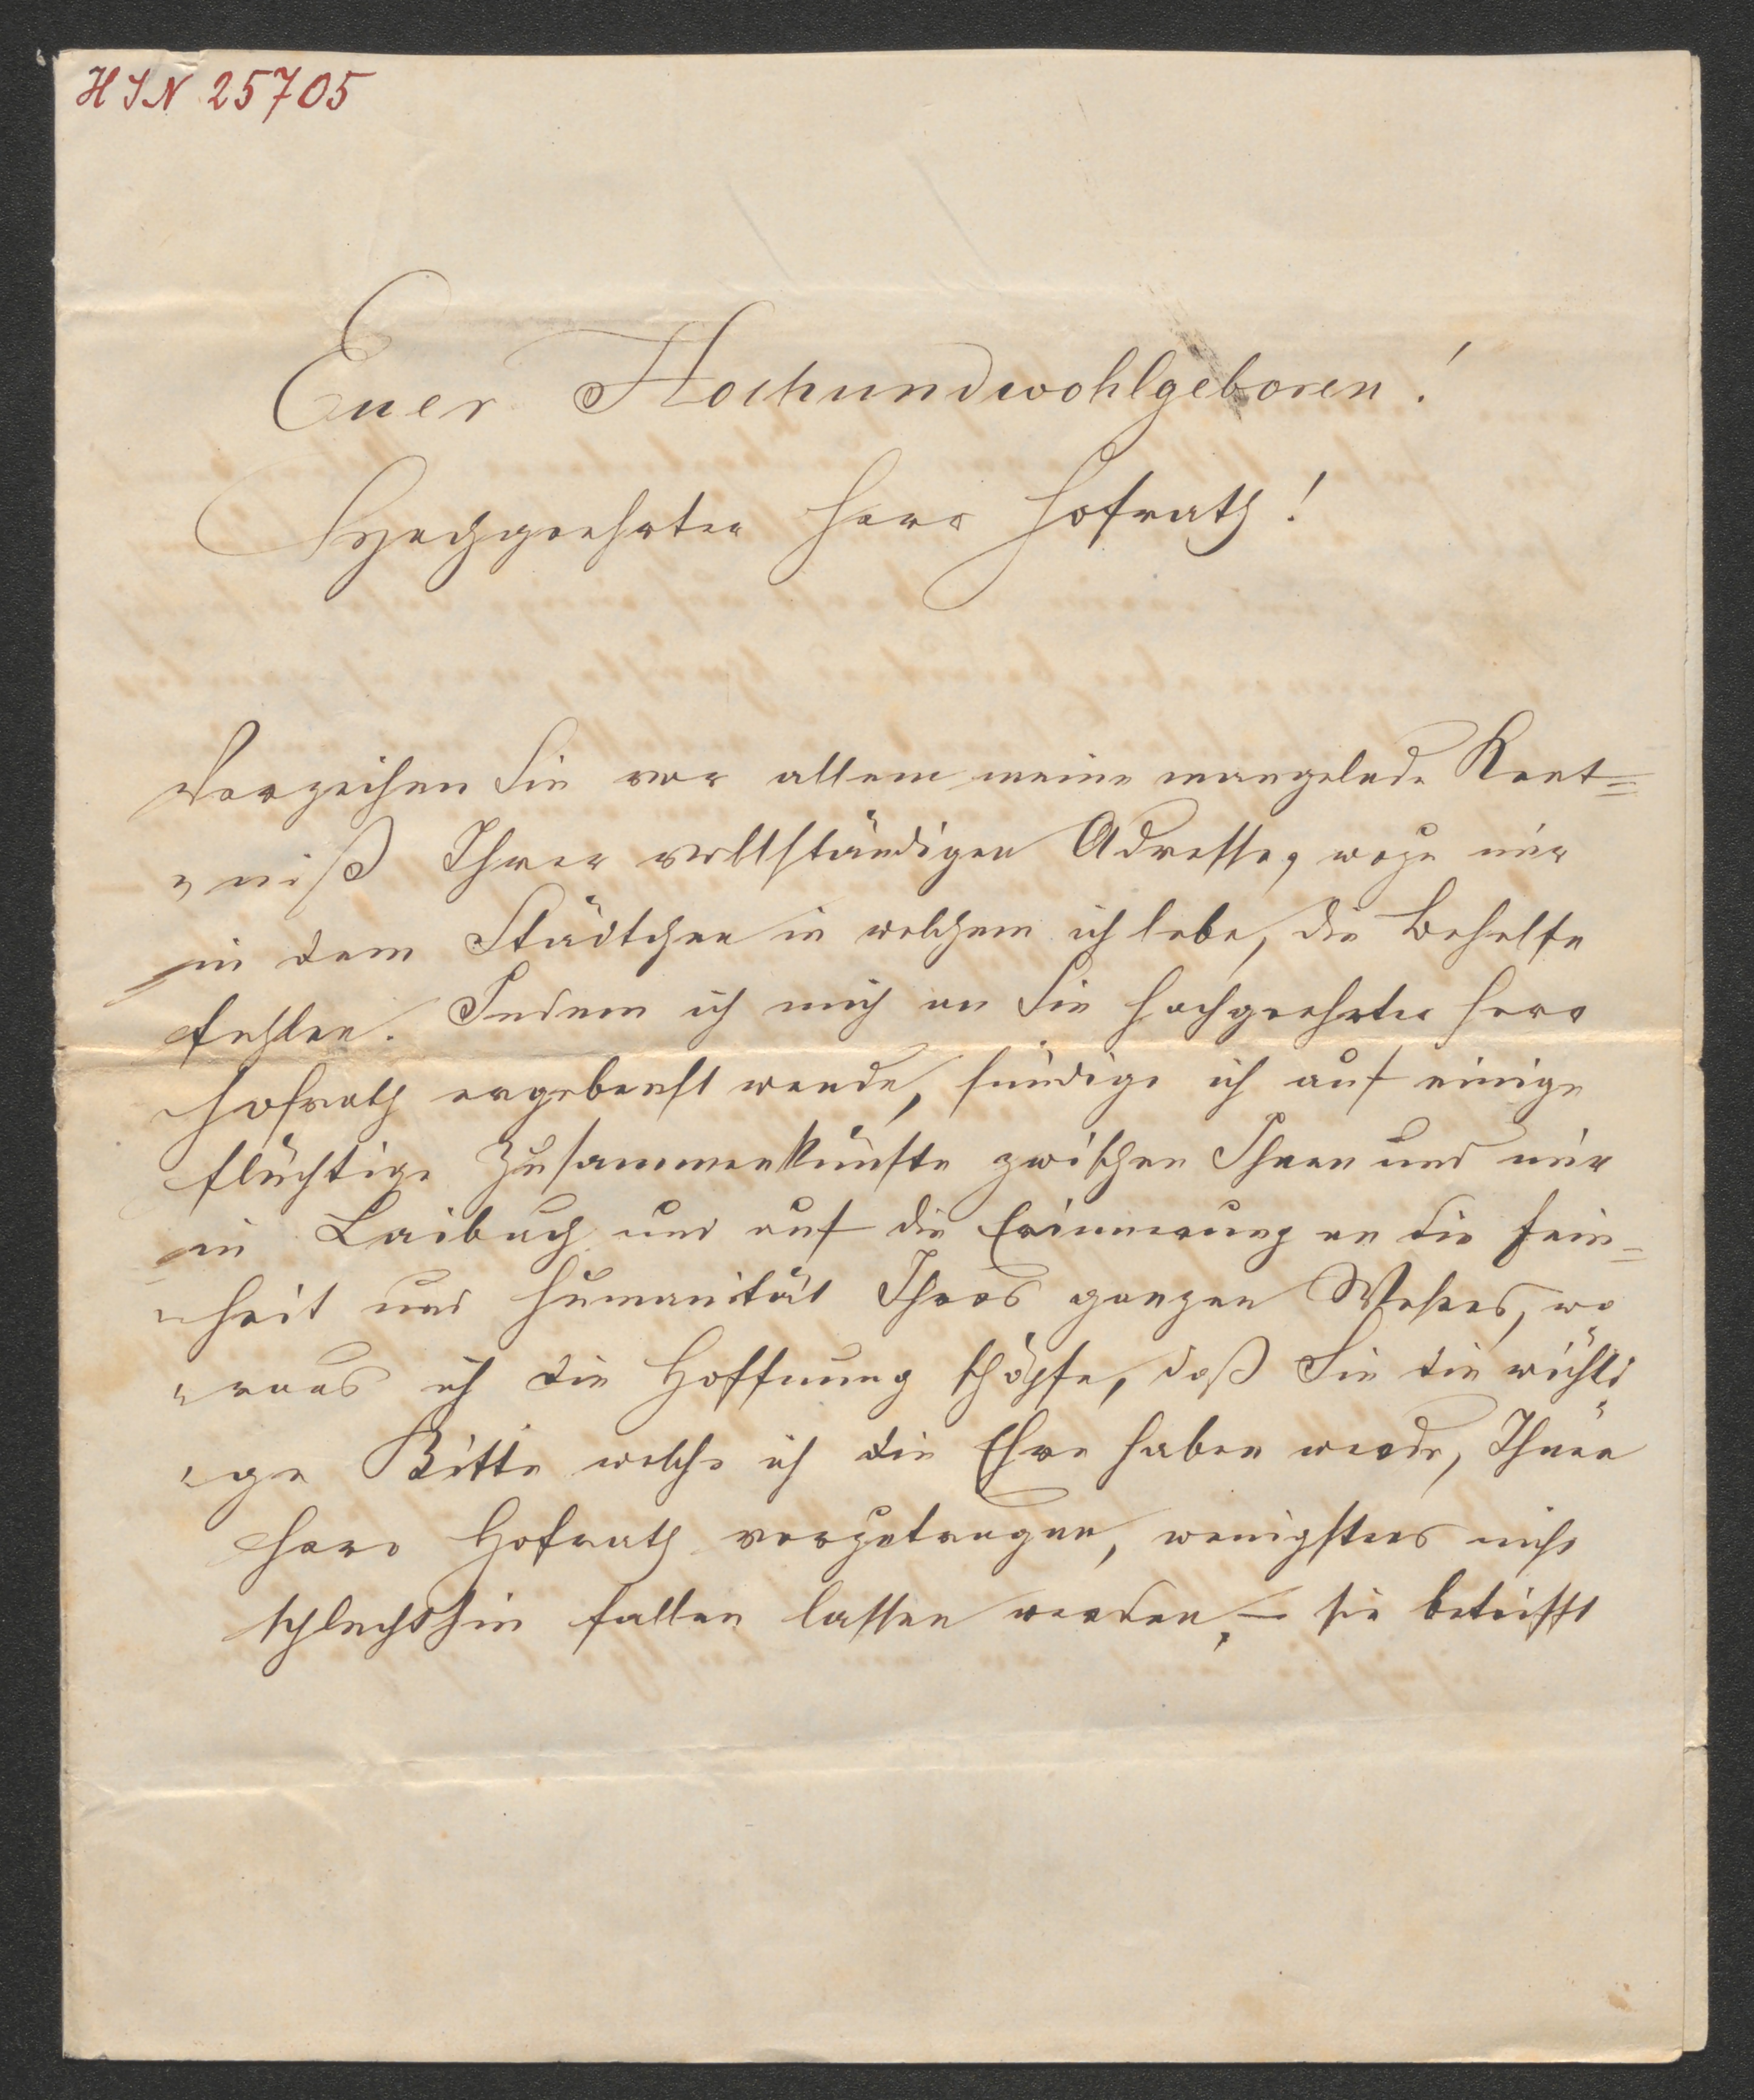 HIN 25705
Euer Hochundwohlgeboren!
Hochgeehrter Herr Hofrath!
Verzeihen Sie vor allem meine mangelnde Kent=
=niß Ihrer vollständigen Adresse, wozu mir
in dem Städtchen in welchem ich lebe, die Behelfe
fehlen. Indem ich mich an Sie hochgeehrter Herr
Hofrath ergebenst wende, sündige ich auf einige
flüchtige Zusammenkünfte zwischen Ihnen und mir
in Laibach und auf die Erinnerung an die Fein=
=heit und Humanität Ihres ganzen Wesens, wo=
=raus ich die Hoffnung schöpfe, daß Sie die
Bitte welche ich die Ehre haben werde, Ihnen
Herr Hofrath vorzutragen, wenigstens nicht
schlechthin fallen lassen werden, – sie betrifft